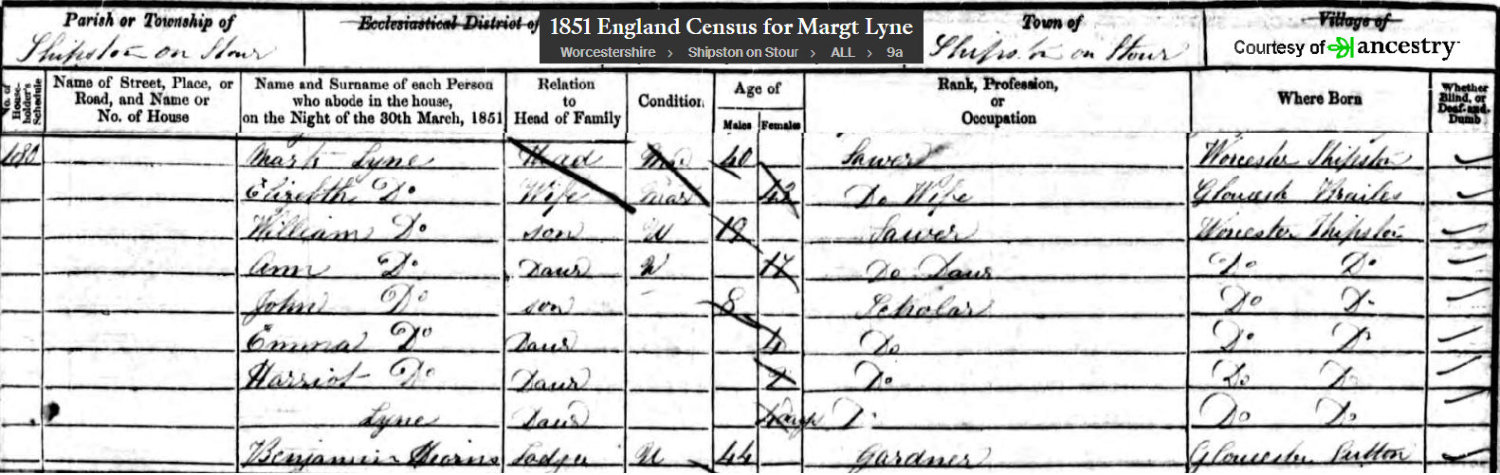 Parish or Township of Ecclesiastical District of 1851 England Census for Margt Lyne Town of Village of
Worcestershire > Shipston on Stour > ALL > 9a
Shipston on Stour Shipston on Stour Courtesy of ancestry
No. of Householder's Schedule Name of Street, Place, or Road, and Name or No. of House Name and Surname of each Person who abode in the house, on the Night of the 30th March, 1851 Relation to Head of Family Condition Age of Males Females Rank, Profession, or Occupation Where Born Whether Blind, or Deaf-and-Dumb
Lyne Head Mar 40 Sawer Worcester Shipston
Elizebth Do Wife Mar 42 Do Wife Brailes
William Do son U 19 Sawer Worcester Shipston
Ann Do Daur U 17 Do Daur Do Do
John Do son 8 Scholar Do Do
Emma Do Daur Do Do Do
Harriot Do Daur Do Do Do
Lyne Daur Do Do Do
Benjamin Lodger U 44 Gardner Gloucester Sutton